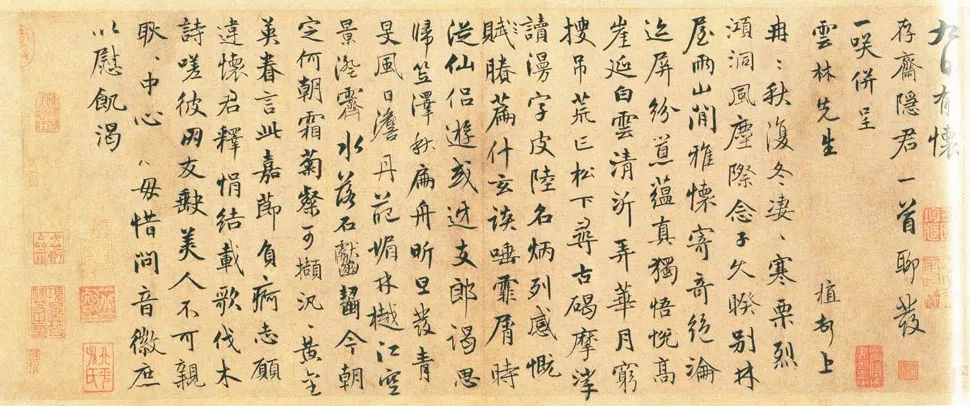 九日有懷
存齋隱君一首聊發
一咲併呈
雲林先生 植 上
冉〻秋復冬淒〻寒栗烈
澒洞風塵際念子久暌別林
屋兩山間雅懷寄奇絕淪
迹屏紛蘊真獨悟悅高
崖延白雲清泝弄華月窮
搜吊荒亡松下尋古碣摩挲
讀漫字皮陸名炳列感慨
賦勝篇什玄談唾霏屑時
從仙侶遊或迓支郎謁思
歸笠澤秋扁舟昕旦發青
旻風日澹丹葩媚林樾江空
景澄霽水落石齧今朝
定何朝霜菊粲可擷況〻黃金
英眷言此嘉節負痾志願
違懷君釋悁結載歌伐木
詩嗟彼朋友缺美人不可親
耿〻中心〻毋惜問音徽庶
以慰飢渴